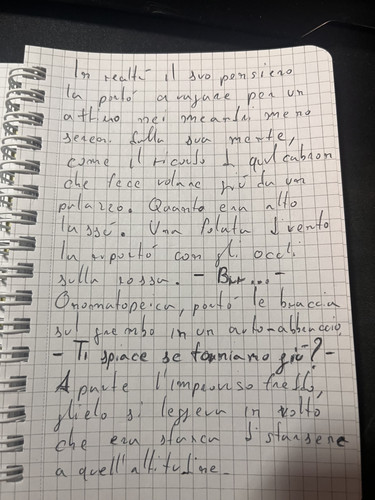 In realtà il suo pensiero
la portò a vagare per un
attimo nei meandri meno
sereni della sua mente,
come il ricordo di quel cabron
che fece volare giù da un
palazzo. Quanto era alto
lassù. Una folata di vento
la riportò con gli occhi
sulla rossa. - Brr... -
Onomatopeica, portò le braccia
sul grembo in un auto-abbraccio
- Ti spiace se torniamo giù? -
A parte l'improvviso freddo,
glielo si leggeva in volto
che era stanca di starsene
a quell'altitudine.